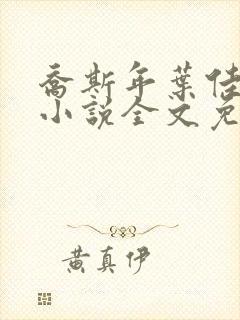 乔斯年葉佳
小說全文免
黄真伊